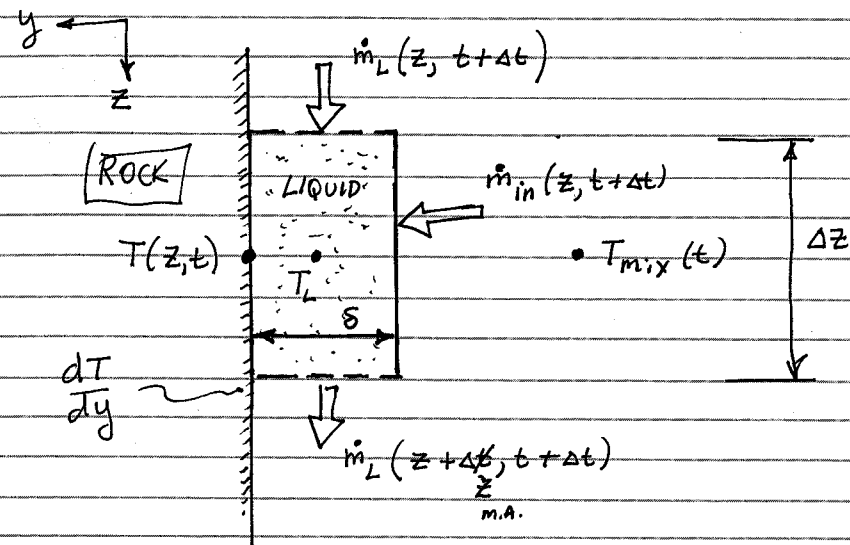 y
z
ṁ_L (z, t+Δt)
ROCK
LIQUID
ṁ_in (z, t+Δt)
T(z,t)
T_L
T_mix (t)
Δz
δ
dT
dy
ṁ_L (z+Δt, t+Δt)
z
m.A.